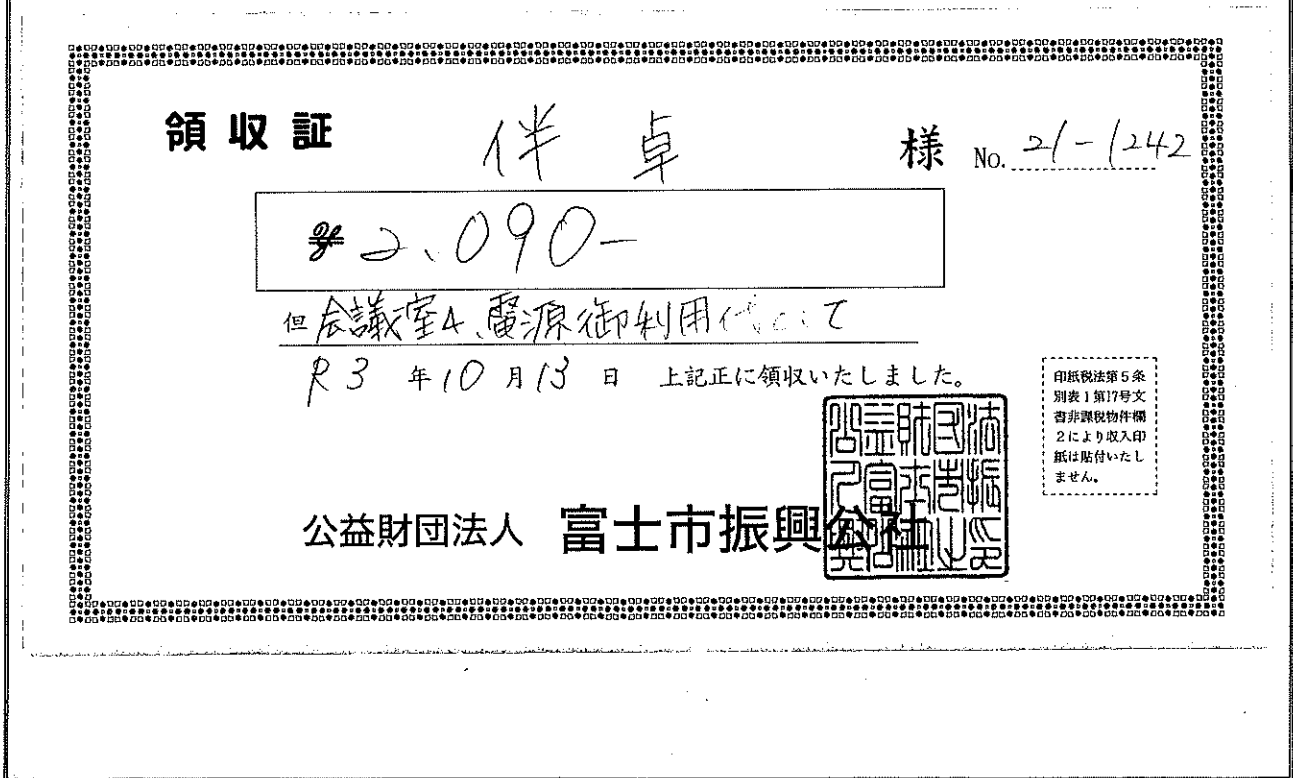 領収証 伴卓 様 No. 21-1242
¥2,090-
但 会議室4、電源御利用代として
R3年10月13日 上記正に領収いたしました。
印紙税法第5条
別表1第17号文
書非課税物件欄
2により収入印
紙は貼付いたし
ません。
公益財団法人 富士市振興公社